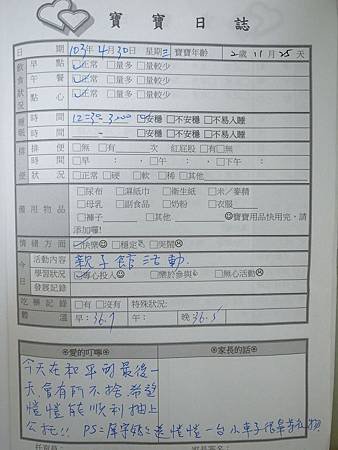 寶寶日誌
日期 103年4月30日 星期三 寶寶年齡 2歲11月25天
飲食狀況 早點 ☑正常 □量多 □量較少
午餐 ☑正常 □量多 □量較少
點心 ☑正常 □量多 □量較少
睡眠 時間 12:30-3:00 ☑安穩 □不安穩 □不易入睡
時間 - □安穩 □不安穩 □不易入睡
排便 排便 □無 □有 次 紅屁股 □有□無
時間 □早: , □午: , □下午:
狀況 □正常 □硬 □軟 □稀 □其他
備用物品 □尿布 □濕紙巾 □衛生紙 □米/麥精
□母乳 □副食品 □奶粉 □衣服
□褲子 □其他 ☺寶寶用品快用完,請
添加喔!
情緒方面 ☑快樂☺ □穩定 □哭鬧
今日 活動內容 親子館活動.
學習狀況 ☑專心投入☺ □樂於參與 □無心活動
發展記錄
吃藥記錄 □有 □沒有 特殊狀況:
體溫 早:36.7 午: 晚:36.5
愛的叮嚀
家長的話
今天在和平的最後一
天,會有所不捨,希望
愷愷能順利抽上
公托!! PS=
愷愷一台小車子